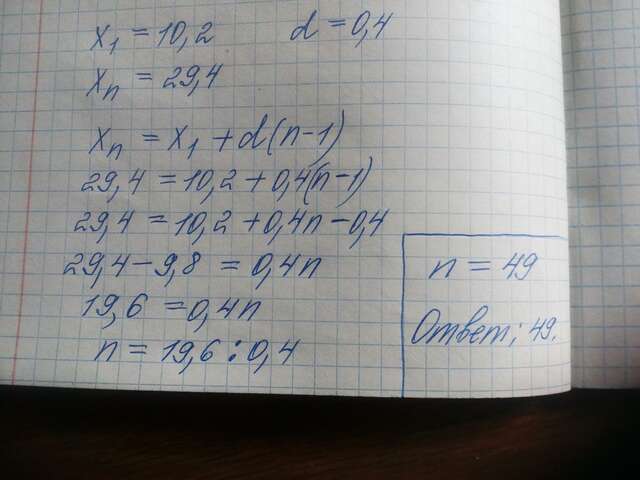 x₁ = 10,2 d = 0,4
xₙ = 29,4
xₙ = x₁ + d(n-1)
29,4 = 10,2 + 0,4(n-1)
29,4 = 10,2 + 0,4n - 0,4
29,4 - 9,8 = 0,4n
19,6 = 0,4n
n = 19,6 : 0,4
n = 49
Ответ: 49.